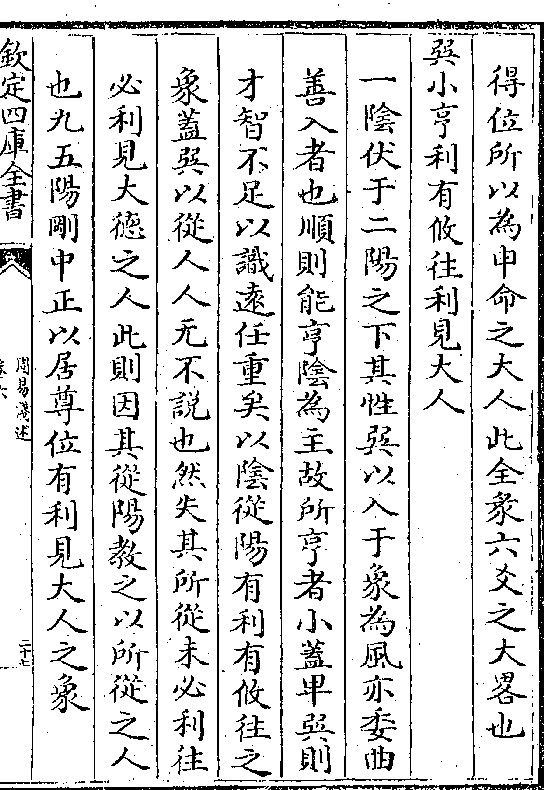 得位所以為申命之大人此全彖六爻之大畧也
巽小亨利有攸往利見大人
一陰伏于二陽之下其性巽以入于象為風亦委曲
善入者也順則能亨陰為主故所亨者小蓋卑巽則
才智不足以識遠任重矣以陰從陽有利有攸往之
象蓋巽以從人人无不說也然失其所從未必利往
必利見大德之人此則因其從陽教之以所從之人
也九五陽剛中正以居尊位有利見大人之象
欽定四庫全書
周易淺述
卷六
二十七